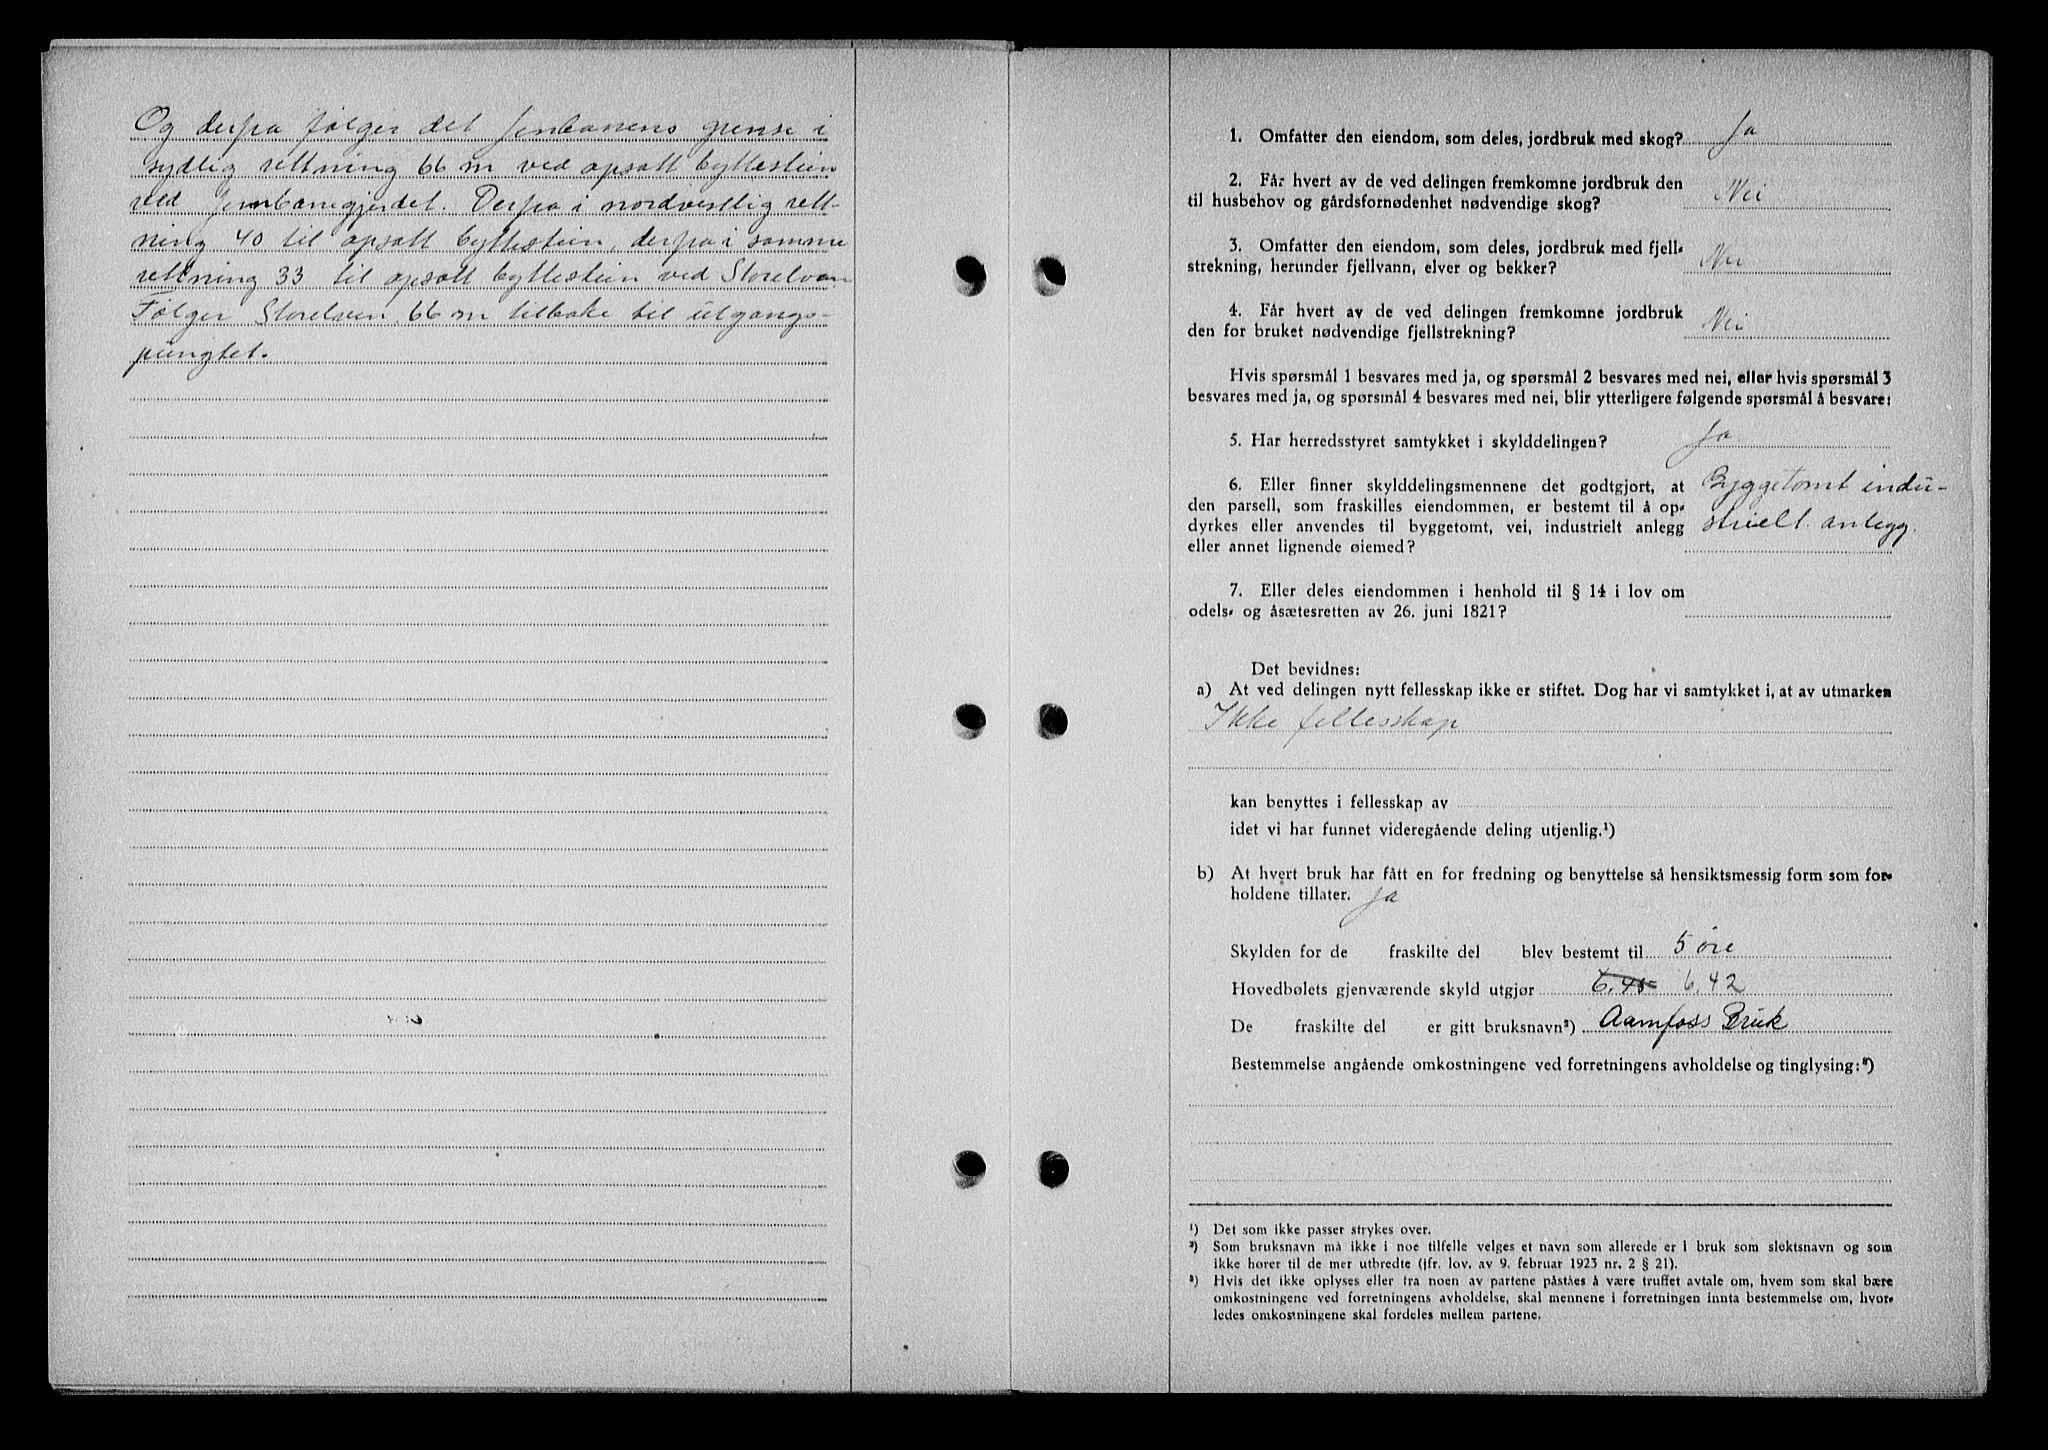 Og derpa følger det Jernbanens grense i
sydlig rettning 66 m ved opsatt byttestein
ved Jernbanegjerdet. Derpa i nordvestlig rett-
ning 40 til opsatt byttestein, derpa i samme
rettning 33 til opsatt byttestein ved Storelven
Følger Storelven 66 m tilbake til utgangs-
pungtet.
1. Omfatter den eiendom, som deles, jordbruk med skog? Ja
2. Får hvert av de ved delingen fremkomne jordbruk den
til husbehov og gårdsfornødenhet nødvendige skog? Nei
3. Omfatter den eiendom, som deles, jordbruk med fjell-
strekning, herunder fjellvann, elver og bekker? Nei
4. Får hvert av de ved delingen fremkomne jordbruk
den for bruket nødvendige fjellstrekning? Nei
Hvis spørsmål 1 besvares med ja, og spørsmål 2 besvares med nei, eller hvis spørsmål 3
besvares med ja, og spørsmål 4 besvares med nei, blir ytterligere følgende spørsmål å besvare:
5. Har herredsstyret samtykket i skylddelingen? Ja
6. Eller finner skylddelingsmennene det godtgjort, at Byggetomt indu-
den parsell, som fraskilles eiendommen, er bestemt til å op-
dyrkes eller anvendes til byggetomt, vei, industrielt anlegg strielt anlegg.
eller annet lignende øiemed?
7. Eller deles eiendommen i henhold til § 14 i lov om
odels- og åsætesretten av 26. juni 1821?
Det bevidnes:
a) At ved delingen nytt fellesskap ikke er stiftet. Dog har vi samtykket i, at av utmarken
Ikke fellesskap
kan benyttes i fellesskap av
idet vi har funnet videregående deling utjenlig.¹)
b) At hvert bruk har fått en for fredning og benyttelse så hensiktsmessig form som for-
holdene tillater. Ja
Skylden for de fraskilte del blev bestemt til 5 øre
Hovedbølets gjenværende skyld utgjør 6,45 6,42
De fraskilte del er gitt bruksnavn²) Aamfoss Bruk
Bestemmelse angående omkostningene ved forretningens avholdelse og tinglysing:³)
¹) Det som ikke passer strykes over.
²) Som bruksnavn må ikke i noe tilfelle velges et navn som allerede er i bruk som slektsnavn og som
ikke hører til de mer utbredte (jfr. lov. av 9. februar 1923 nr. 2 § 21).
³) Hvis det ikke oplyses eller fra noen av partene påståes å være truffet avtale om, hvem som skal bære
omkostningene ved forretningens avholdelse, skal mennene i forretningen innta bestemmelse om, hvor-
ledes omkostningene skal fordeles mellem partene.